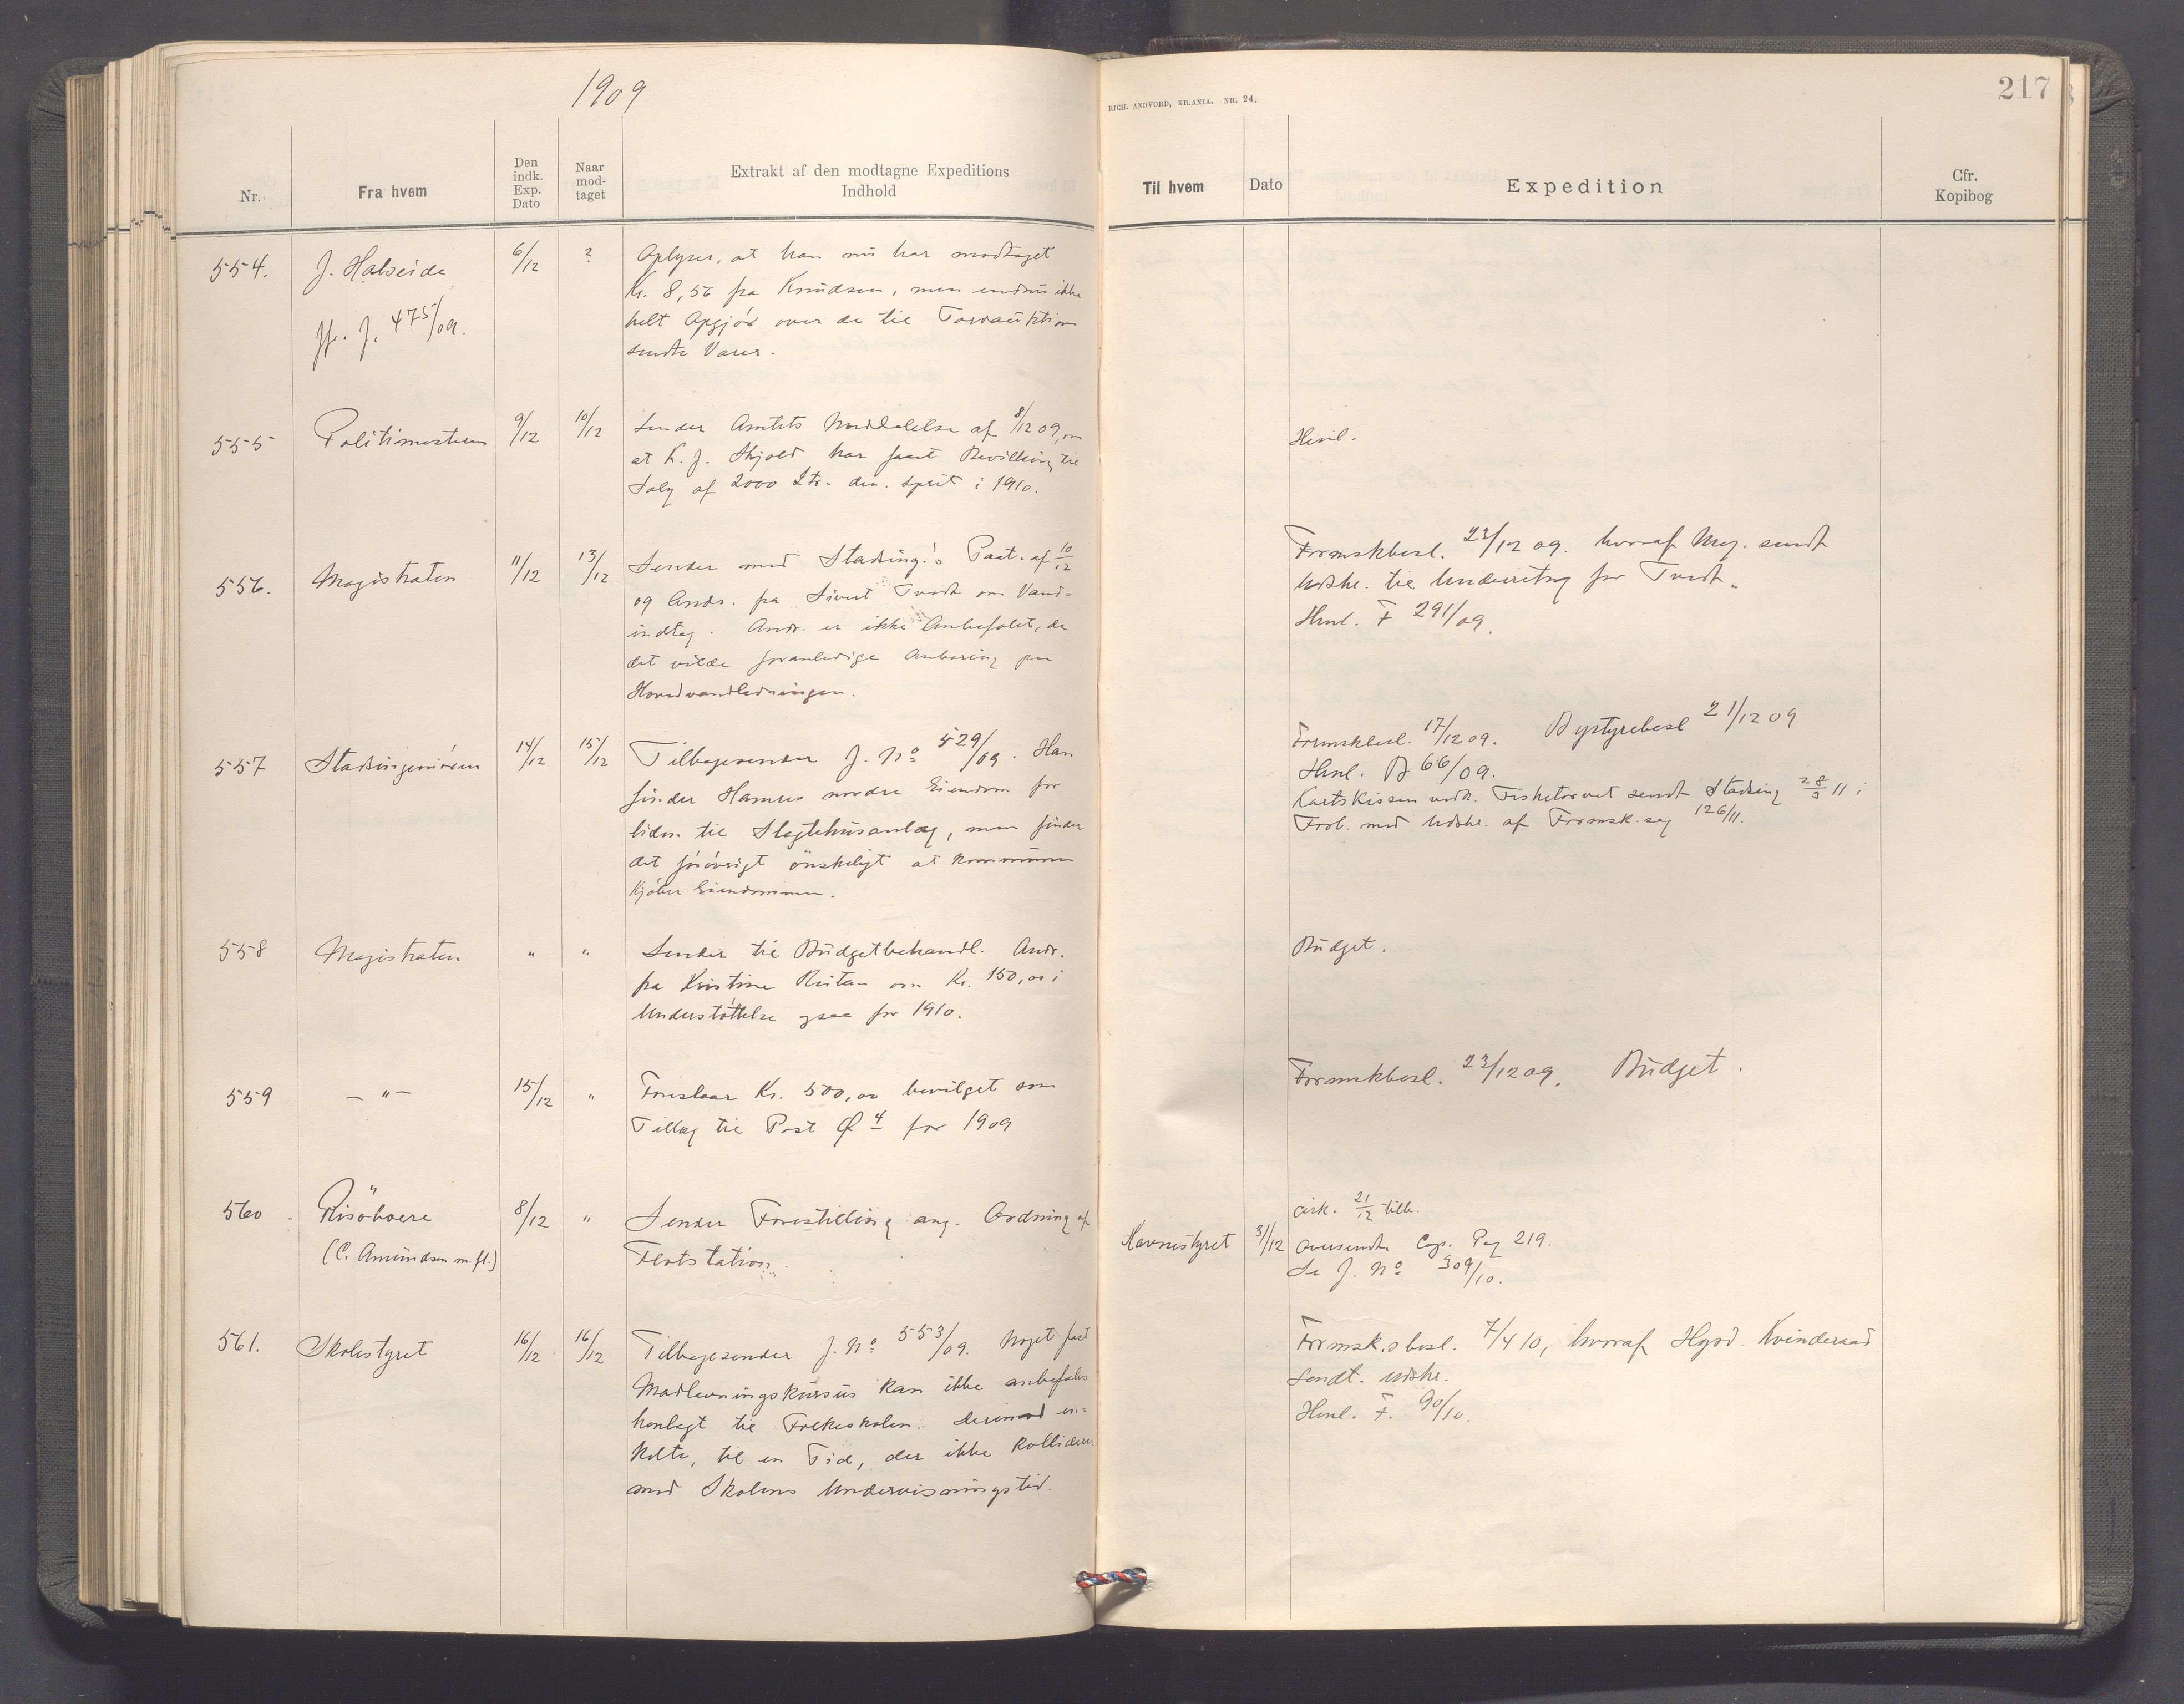 1909
RICH. ANDVORD, KR.ANIA. NR. 24.
217
Nr.
Fra hvem
Den indk. Exp. Dato
Naar mod-taget
Extrakt af den modtagne Expeditions Indhold
Til hvem
Dato
Expedition
Cfr. Kopibog
554. J. Halseide 6/12 ? Oplyser, at han nu har modtaget
Kr. 8,56 fra Knudsen, men endnu ikke
Jfr. J. 475/09. helt Opgjør over de til Torvauktion
sendte Varer.
555 Politimesteren 9/12 10/12 Sender Amtets Meddelelse af 8/12 09, om
at L. J. Skjold har faaet Bevilling til
Salg af 2000 Ltr. den. sprit i 1910.
Henl.
556. Magistraten 11/12 13/12 Sender med Stadsing.'s Paat. af 10/12
og Andr. fra Sivert Tvedt om Vand=
indtag. Andr. er ikke Anbefalet, da
det vilde foranledige Anboring paa
Hovedvandledningen.
Formskbesl. 23/12 09. hvoraf Mag. sendt
Udskr. til Underretng for Tvedt.
Henl. F 291/09.
557 Stadsingeniøren 14/12 15/12 Tilbagesender J. No 529/09. Han
finder Hamres nordre Eiendom for
liden til Slagtehusanlæg, men finder
det forøvrigt ønskeligt at Kommunen
Kjøber Eiendommen.
Formskbesl. 17/12 09. Bystyrebesl 21/12 09
Henl. B 66/09.
Kartskissen vedk. Fisketorvet sendt Stadsing 28/3 11 i
Forb. med Udskr. af Formsk. sag 126/11.
558 Magistraten " " Sender til Budgetbehandl. Andr.
fra Kristine om Kr. 150,00 i
Understøttelse ogsaa for 1910.
Budget.
559 — " — 15/12 " Foreslaar Kr. 500,00 bevilget som
Tillæg til Post Ø 4 for 1909
Formskbesl. 23/12 09. Budget.
560 Risøboere 8/12 " Sender Forestilling ang. Ordning af
(C. Amundsen m. fl.) Flotstation.
cirk. 21/12 tilb.
Havnestyret 31/12 oversendte Cop. Pag 219.
Se J. No 309/10.
561. Skolestyret 16/12 16/12 Tilbagesender J. No 553/09. Noget fast
Madlavningskursus kan ikke anbefales
henlagt til Folkeskolen. Derimod en=
kelte, til en Tid, der ikke kolliderer
med Skolens Undervisningstid.
Formsk.sbesl. 7/4 10, hvoraf Hgsd. Kvinderaad
sendt. Udskr.
Henl. F. 90/10.